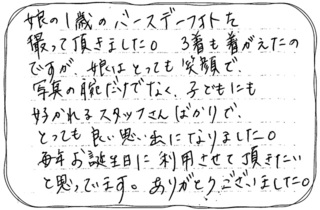 娘の1歳のバースデーフォトを
撮って頂きました。3着も着がえたの
ですが、娘はとっても笑顔で、
写真の腕だけでなく、子どもにも
好かれるスタッフさんばかりで、
とっても良い思い出になりました。
毎年お誕生日に利用させて頂きたい
と思ってます。ありがとうございました。